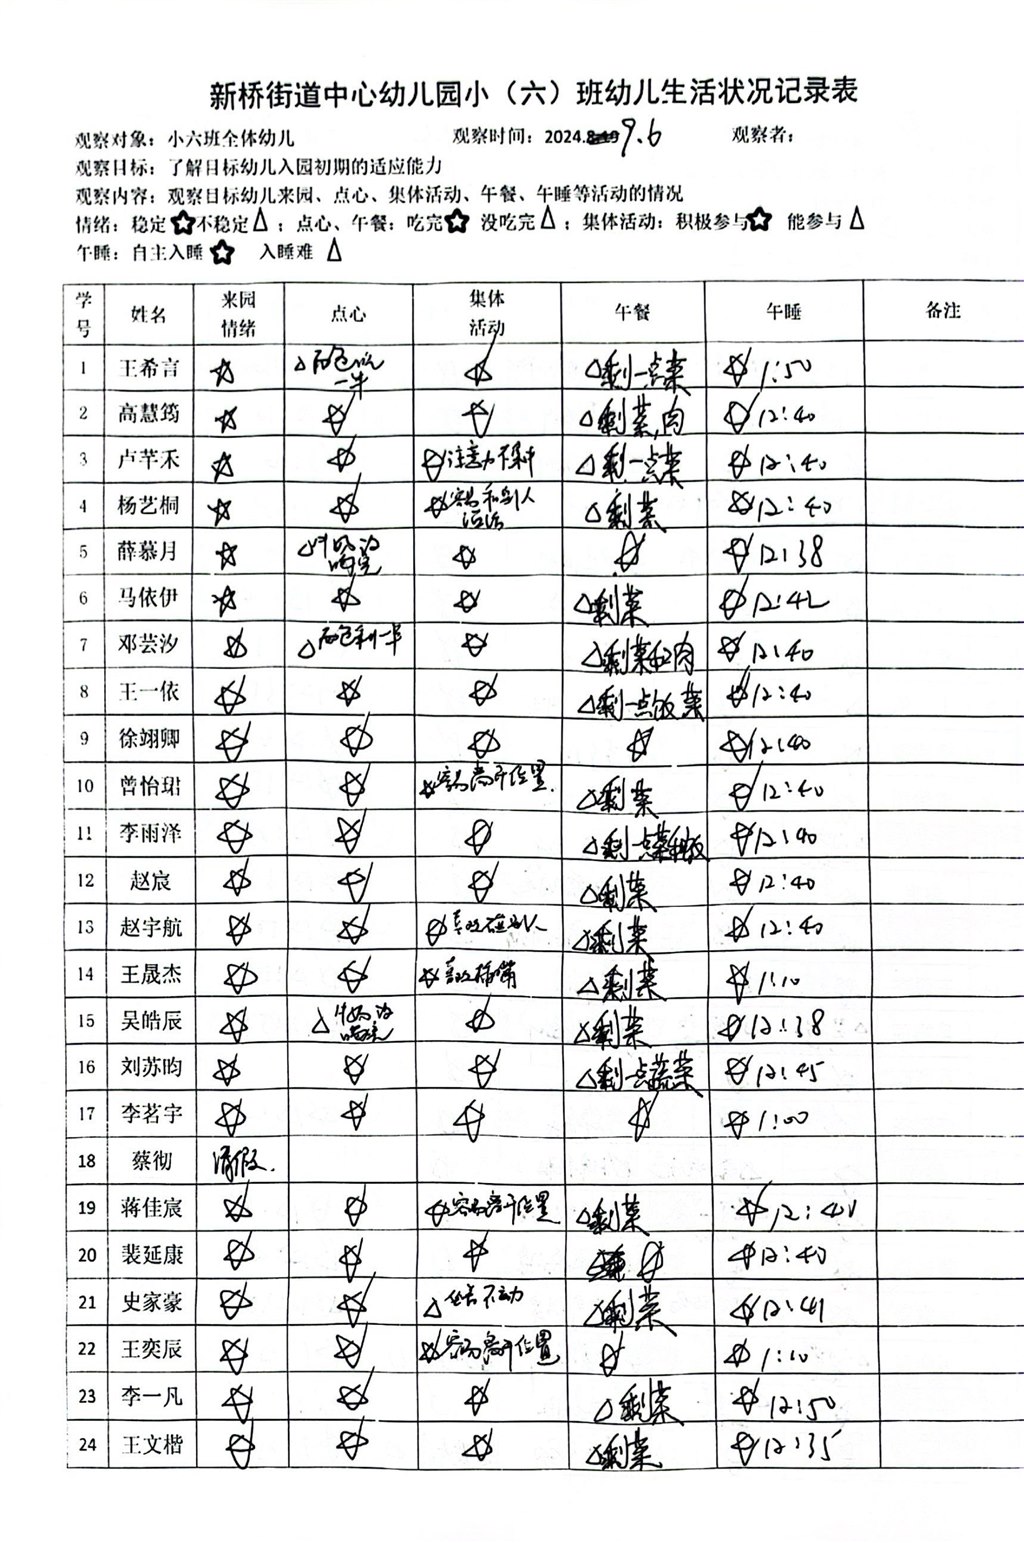 新桥街道中心幼儿园小（六）班幼儿生活状况记录表
观察对象：小六班全体幼儿 观察时间：2024.9.6 观察者：
观察目标：了解目标幼儿入园初期的适应能力
观察内容：观察目标幼儿来园、点心、集体活动、午餐、午睡等活动的情况
情绪：稳定☆不稳定△；点心、午餐：吃完☆ 没吃完△；集体活动：积极参与☆ 能参与△
午睡：自主入睡☆ 入睡难△
学号 姓名 来园情绪 点心 集体活动 午餐 午睡 备注
1 王希言 ☆ △面包吃一半 ☆ △剩一点菜 ☆1:50
2 高慧筠 ☆ ☆ ☆ △剩菜,肉 ☆12:40
3 卢芊禾 ☆ ☆ ☆注意力不集中 △剩一点菜 ☆12:40
4 杨艺桐 ☆ ☆ ☆容易和别人说话 △剩菜 ☆12:40
5 薛慕月 ☆ △牛奶没喝完 ☆ ☆ ☆12:38
6 马依伊 ☆ ☆ ☆ △剩菜 ☆12:42
7 邓芸汐 ☆ △面包剩一半 ☆ △剩菜和肉 ☆12:40
8 王一依 ☆ ☆ ☆ △剩一点饭菜 ☆12:40
9 徐翊卿 ☆ ☆ ☆ ☆ ☆12:40
10 曾怡珺 ☆ ☆ ☆容易离开位置. △剩菜 ☆12:40
11 李雨泽 ☆ ☆ ☆ △剩一点菜和饭 ☆12:40
12 赵宸 ☆ ☆ ☆ △剩菜 ☆12:40
13 赵宇航 ☆ ☆ ☆喜欢碰别人 △剩菜 ☆12:40
14 王晟杰 ☆ ☆ ☆喜欢插嘴 △剩菜 ☆1:10
15 吴皓辰 ☆ △牛奶没喝完 ☆ △剩菜 ☆12:38
16 刘苏昀 ☆ ☆ ☆ △剩一点蔬菜 ☆12:45
17 李茗宇 ☆ ☆ ☆ ☆ ☆1:00
18 蔡彻 请假.
19 蒋佳宸 ☆ ☆ ☆容易离开位置 △剩菜 ☆12:41
20 裴延康 ☆ ☆ ☆ ☆ ☆12:40
21 史家豪 ☆ ☆ △坐着不动 △剩菜 ☆12:41
22 王奕辰 ☆ ☆ ☆容易离开位置 ☆ ☆1:10
23 李一凡 ☆ ☆ ☆ △剩菜 ☆12:50
24 王文楷 ☆ ☆ ☆ △剩菜 ☆12:35